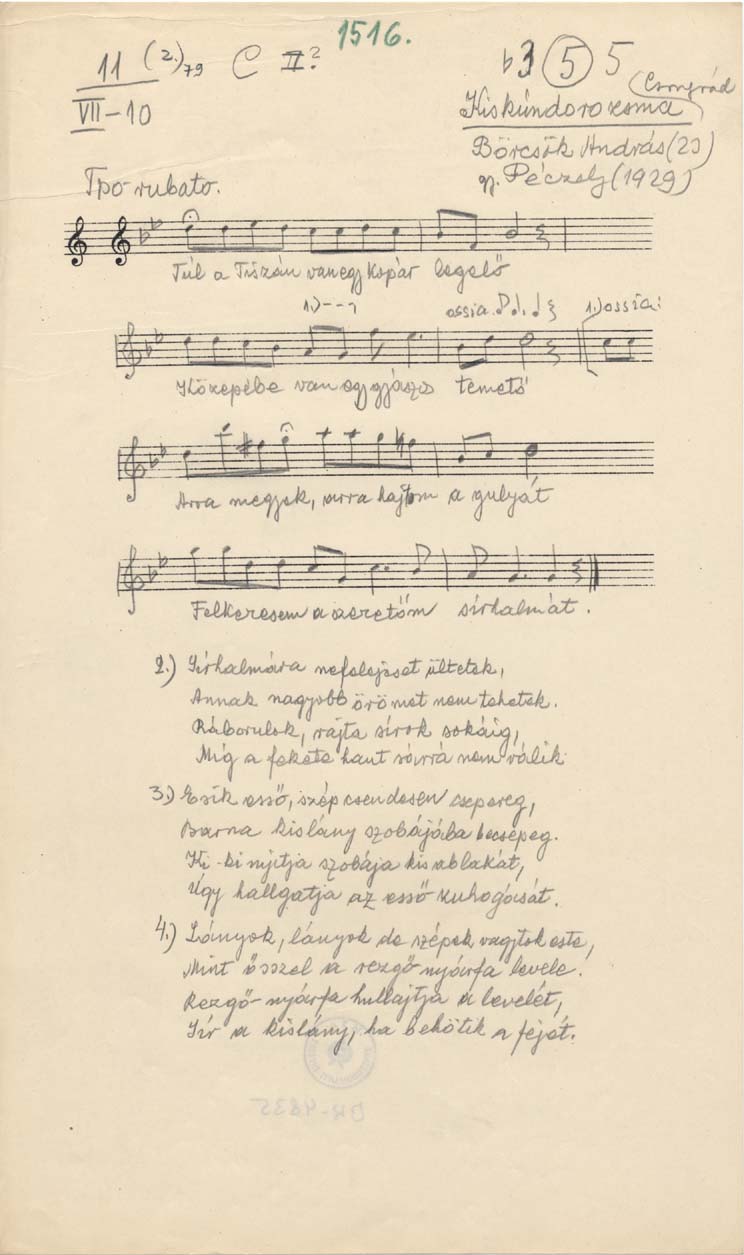 1516.
11 (2.)79 C II?
VII-10
♭3 (5) 5
Csongrád
Kiskúndorozsma
Börcsök András (23)
gy. Péczely (1929)
Tpo rubato.
Túl a Tiszán van egy kopár legelő
1.)--- ossia. 1.) ossia:
Közepébe van egy gyászos temető
Arra megyek, arra hajtom a gulyát
Felkeresem a szeretőm sírhalmát.
2.) Sírhalmára nefelejcset ültetek,
Annak nagyobb örömet nem tehetek.
Ráborulok, rajta sírok sokáig,
Míg a fekete hant sárrá nem válik
3.) Esik esső, szép csendesen csepereg,
Barna kislány szobájába becsepeg.
Ki-ki nyitja szobája kis ablakát,
Úgy hallgatja az esső zuhogását.
4.) Lányok, lányok de szépek vagytok este,
Mint ősszel a rezgő-nyárfa levele.
Rezgő-nyárfa hullajtja a levelét,
Sír a kislány, ha bekötik a fejét.
BR-4835